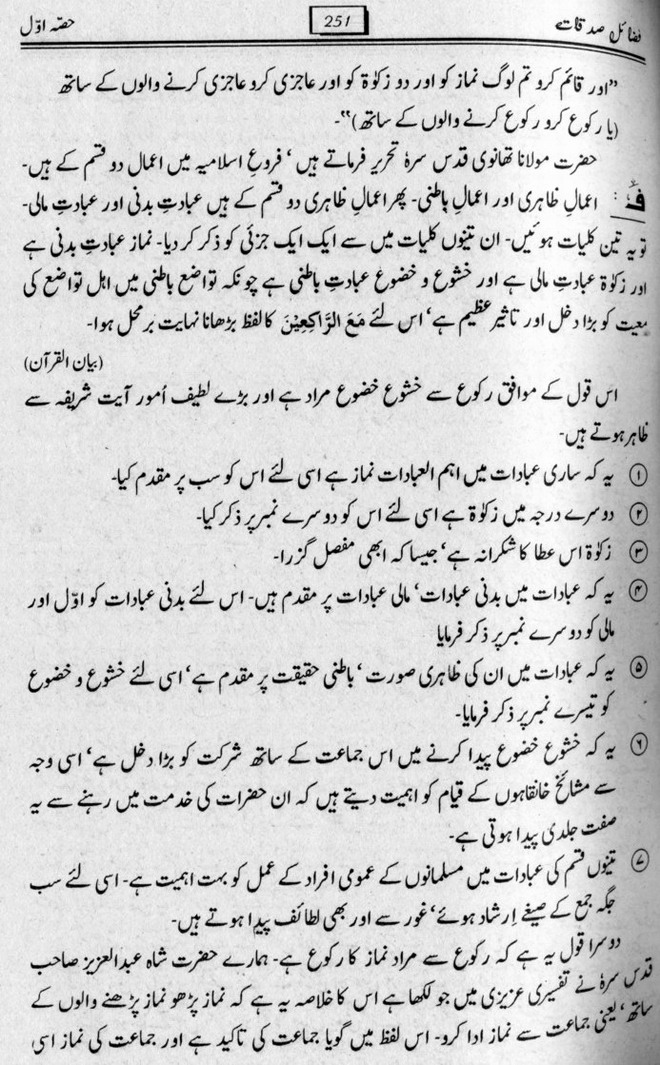 فضائل صدقات
251
حصہ اوّل
”اور قائم کرو تم لوگ نماز کو اور دو زکوٰۃ کو اور عاجزی کرو عاجزی کرنے والوں کے ساتھ
(یا رکوع کرو رکوع کرنے والوں کے ساتھ)“۔
حضرت مولانا تھانوی قدس سرہٗ تحریر فرماتے ہیں‘ فروع اسلامیہ میں اعمال دو قسم کے ہیں۔
ف: اعمالِ ظاہری اور اعمالِ باطنی۔ پھر اعمالِ ظاہری دو قسم کے ہیں عبادتِ بدنی اور عبادتِ مالی۔
تو یہ تین کلیات ہوئیں۔ ان تینوں کلیات میں سے ایک ایک جزئی کو ذکر کر دیا۔ نماز عبادتِ بدنی ہے
اور زکوٰۃ عبادتِ مالی ہے اور خشوع و خضوع عبادتِ باطنی ہے چونکہ تواضع باطنی میں اہل تواضع کی
معیت کو بڑا دخل اور تاثیر عظیم ہے‘ اس لئے مَعَ الرَّاكِعِيْنَ کا لفظ بڑھانا نہایت بر محل ہوا۔
(بیان القرآن)
اس قول کے موافق رکوع سے خشوع خضوع مراد ہے اور بڑے لطیف اُمور آیت شریفہ سے
ظاہر ہوتے ہیں۔
① یہ کہ ساری عبادات میں اہم العبادات نماز ہے اسی لئے اس کو سب پر مقدم کیا۔
② دوسرے درجہ میں زکوٰۃ ہے اسی لئے اس کو دوسرے نمبر پر ذکر کیا۔
③ زکوٰۃ اس عطا کا شکرانہ ہے‘ جیسا کہ ابھی مفصل گزرا۔
④ یہ کہ عبادات میں بدنی عبادات‘ مالی عبادات پر مقدم ہیں۔ اس لئے بدنی عبادات کو اوّل اور
مالی کو دوسرے نمبر پر ذکر فرمایا
⑤ یہ کہ عبادات میں ان کی ظاہری صورت‘ باطنی حقیقت پر مقدم ہے‘ اسی لئے خشوع و خضوع
کو تیسرے نمبر پر ذکر فرمایا۔
⑥ یہ کہ خشوع خضوع پیدا کرنے میں اس جماعت کے ساتھ شرکت کو بڑا دخل ہے‘ اسی وجہ
سے مشائخ خانقاہوں کے قیام کو اہمیت دیتے ہیں کہ ان حضرات کی خدمت میں رہنے سے یہ
صفت جلدی پیدا ہوتی ہے۔
⑦ تینوں قسم کی عبادات میں مسلمانوں کے عمومی افراد کے عمل کو بہت اہمیت ہے۔ اسی لئے سب
جگہ جمع کے صیغے اِرشاد ہوئے‘ غور سے اور بھی لطائف پیدا ہوتے ہیں۔
دوسرا قول یہ ہے کہ رکوع سے مراد نماز کا رکوع ہے۔ ہمارے حضرت شاہ عبدالعزیز صاحب
قدس سرہٗ نے تفسیری عزیزی میں جو لکھا ہے اس کا خلاصہ یہ ہے کہ نماز پڑھو نماز پڑھنے والوں کے
ساتھ‘ یعنی جماعت سے نماز ادا کرو۔ اس لفظ میں گویا جماعت کی تاکید ہے اور جماعت کی نماز اسی